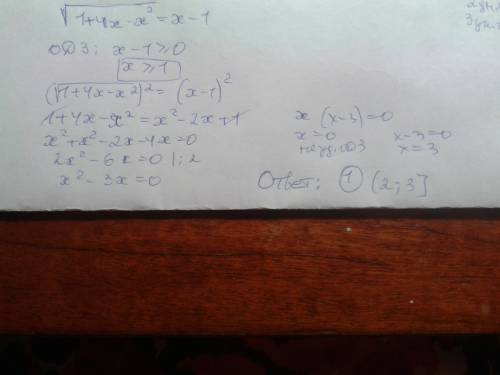 √1+4x-x² = x-1
ОДЗ: x-1≥0
x≥1
(√1+4x-x²)² = (x-1)²
1+4x-x²=x²-2x+1
x²+x²-2x-4x=0
2x²-6x=0 |:2
x²-3x=0
x(x-3)=0
x=0 x-3=0
не уд. ОДЗ x=3
Ответ: 1 (2;3]